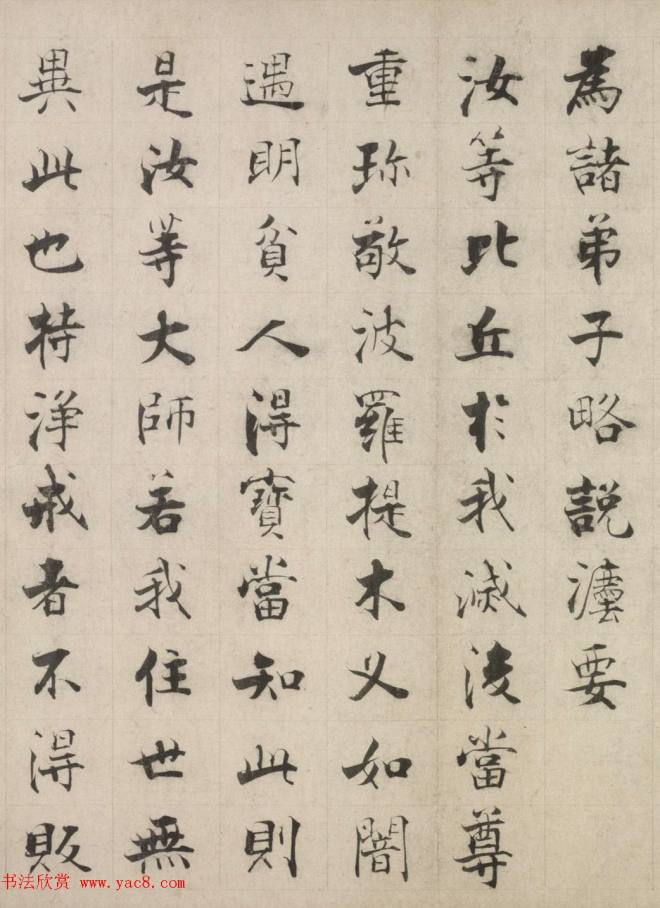 為諸弟子略説灋要
汝等比丘於我滅後當尊
重珎敬波羅提木叉如闇
遇明貧人得寶當知此則
是汝等大師若我住世無
異此也持淨戒者不得販
书法欣赏 www.yac8.com